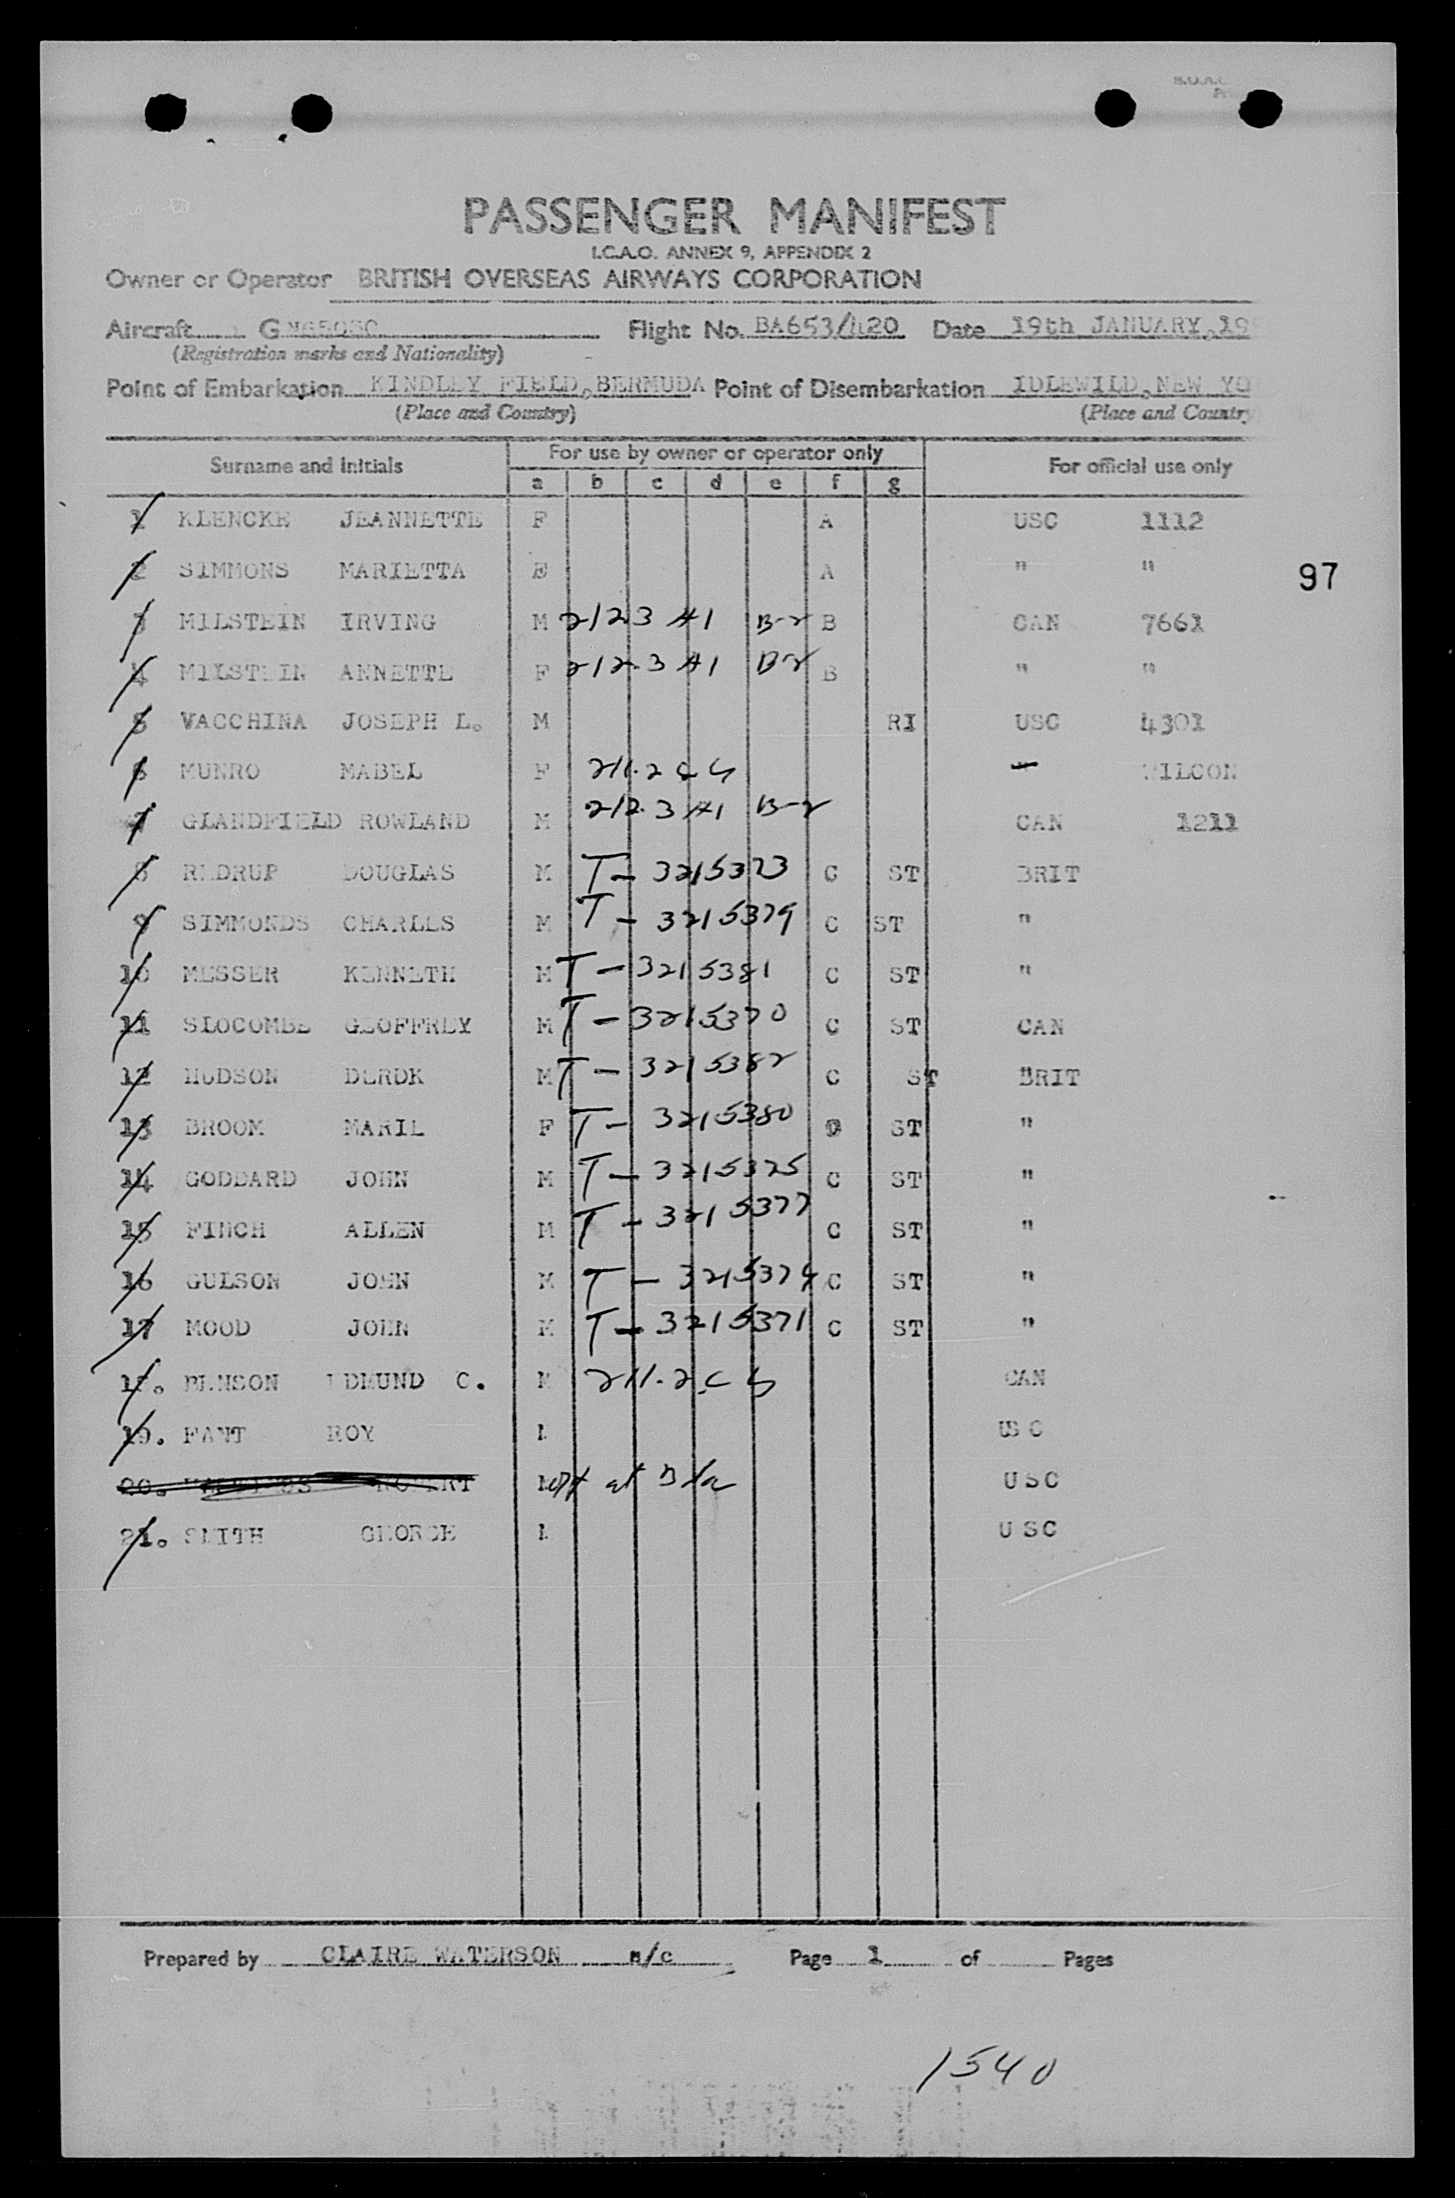 PASSENGER MANIFEST
I.C.A.O. ANNEX 9, APPENDIX 2
Owner or Operator BRITISH OVERSEAS AIRWAYS CORPORATION
Aircraft Flight No. BA653/420 Date 19th JANUARY, 19
(Registration marks and Nationality)
Point of Embarkation KINDLEY FIELD, BERMUDA Point of Disembarkation IDLEWILD, NEW YO
(Place and Country) (Place and Country
Surname and initials For use by owner or operator only For official use only
a b c d e f g
1 KLENCKE JEANNETTE F A USC 1112
2 SIMMONS MARIETTA F A " "
97
3 MILSTEIN IRVING M 212.3 A1 B-2 B CAN 7661
4 MILSTEIN ANNETTE F 212.3 A1 B2 B " "
5 VACCHINA JOSEPH L. M RI USC 4301
6 MUNRO MABEL F 211.2 C 4 "
7 GLANDFIELD ROWLAND M 212.3 A1 B-2 CAN 1211
8 REDRUP DOUGLAS M T-3215373 C ST BRIT
9 SIMMONDS CHARLES M T-3215379 C ST "
10 MESSER KENNETH M T-3215381 C ST "
11 SLOCOMBE GEOFFREY M T-3215370 C ST CAN
12 HUDSON DEREK M T-3215382 C ST BRIT
13 BROOM MARIE F T-3215380 D ST "
14 GODDARD JOHN M T-3215375 C ST "
15 FINCH ALLEN M T-3215377 C ST "
16 GULSON JOHN M T-3215374 C ST "
17 MOOD JOHN M T-3215371 C ST "
18. BENSON EDMUND C. M 211.2 C 4 CAN
19. FANT ROY M USC
20. M off at Bda USC
21. SMITH GEORGE M USC
Prepared by CLAIRE WATERSON n/c Page 1 of Pages
1540